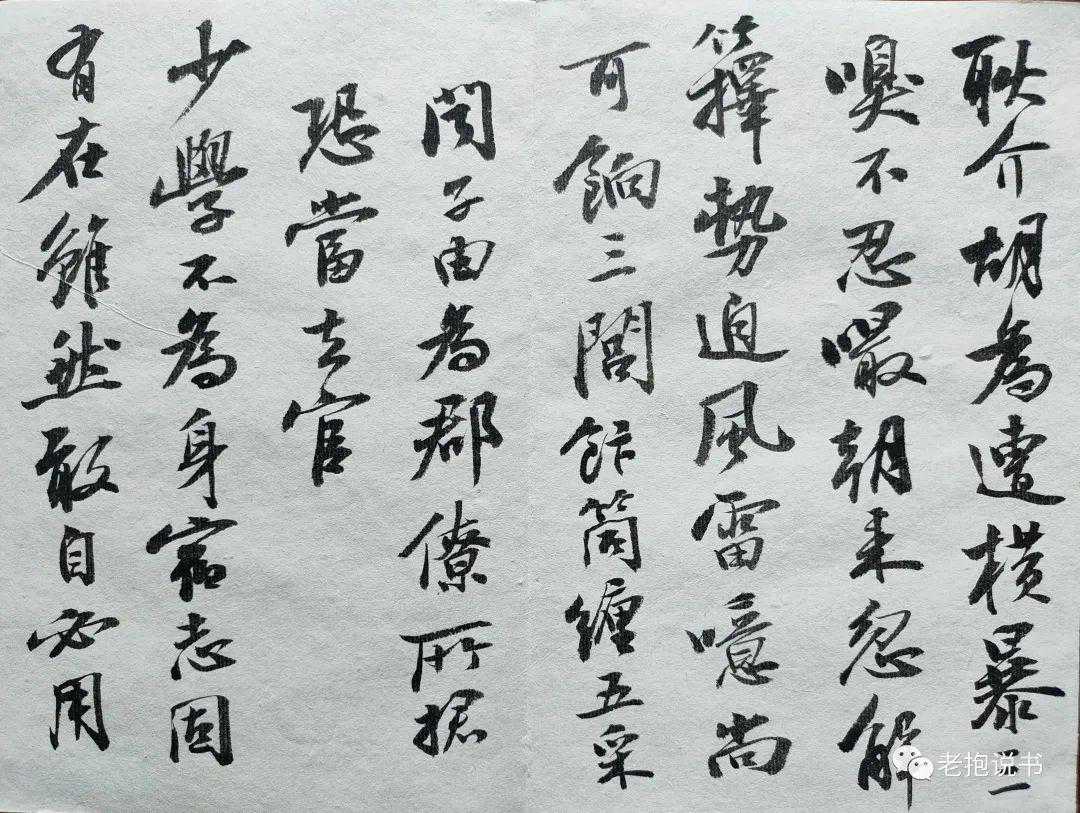 耿介胡為遭橫暴三
嗅不忍嘬朝来忽解
籜勢迫風雷噫尚
可餉三閭飰筒纏五采
聞子由為郡僚所捃
恐當去官
少學不為身宿志固
有在雖然敢自必用
老抱说书